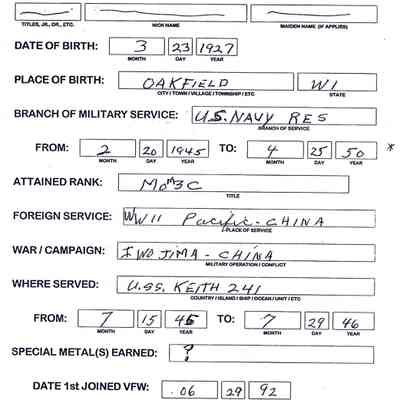 TITLES, JR., DR., ETC. NICK NAME MAIDEN NAME (IF APPLIES)
DATE OF BIRTH: 3 23 1927
MONTH DAY YEAR
PLACE OF BIRTH: OAKFIELD WI
CITY / TOWN / VILLAGE / TOWNSHIP / ETC STATE
BRANCH OF MILITARY SERVICE: U.S. NAVY RES
BRANCH OF SERVICE
FROM: 2 20 1945 TO: 4 25 50 *
MONTH DAY YEAR MONTH DAY YEAR
ATTAINED RANK: MoMM3C
TITLE
FOREIGN SERVICE: WWII Pacific - CHINA
PLACE OF SERVICE
WAR / CAMPAIGN: IWO JIMA - CHINA
MILITARY OPERATION / CONFLICT
WHERE SERVED: U.S.S. KEITH 241
COUNTRY / ISLAND / SHIP / OCEAN / UNIT / ETC
FROM: 7 15 45 TO: 7 29 46
MONTH DAY YEAR MONTH DAY YEAR
SPECIAL METAL(S) EARNED: ?
DATE 1st JOINED VFW: 06 29 92